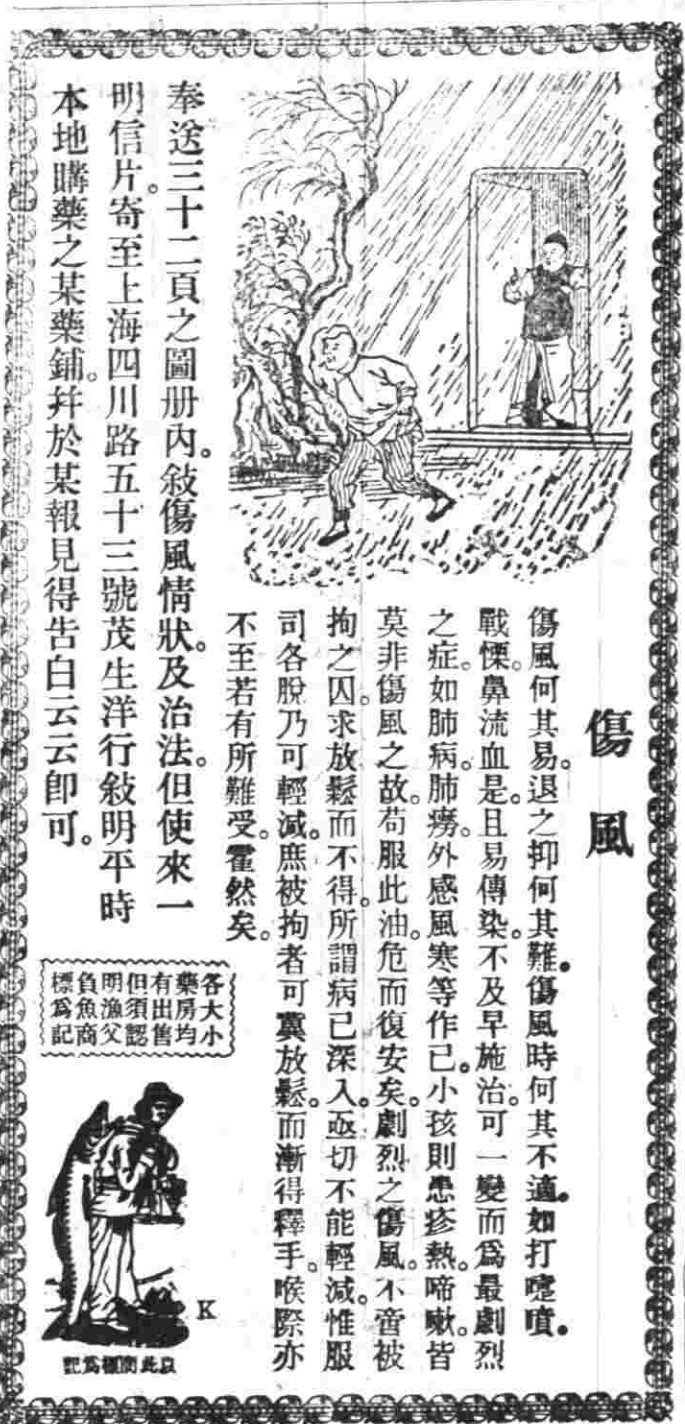 傷風
傷風何其易。退之抑何其難。傷風時何其不適。如打嚏噴。
戰慄。鼻流血是。且易傳染。不及早施治。可一變而爲最劇烈
之症。如肺病。肺癆。外感風寒等作已。小孩則患疹熱。啼嗽。皆
莫非傷風之故。苟服此油。危而復安矣。劇烈之傷風。不啻被
拘之囚。求放鬆而不得。所謂病已深入。亟切不能輕減。惟服
司各脫乃可輕減。庶被拘者可冀放鬆。而漸得釋手。喉際亦
不至若有所難受。霍然矣。
奉送三十二頁之圖册內。敍傷風情狀。及治法。但使來一
明信片。寄至上海四川路五十三號茂生洋行敍明平時
本地購藥之某藥鋪。幷於某報見得告白云云卽可。
各大小
藥房均
有出售
但須認
明漁父
負魚商
標爲記
K
以此商標爲記